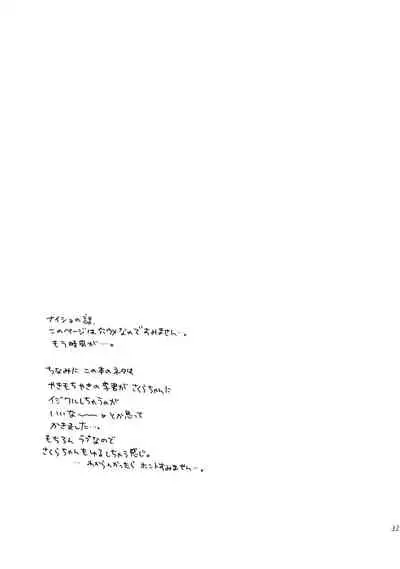 ナイショの話。
このページは穴ウメなのですみません…。
もう時間が…。
ちなみに この本のネタは
やきもちやきの李君が さくらちゃんに
イジワルしちゃうのが
いいな〜〜 とか思って
かきました…。
もちろん ラブなので
さくらちゃんもゆるしちゃう感じ。
… わからなかったら ホントすみません…。
32